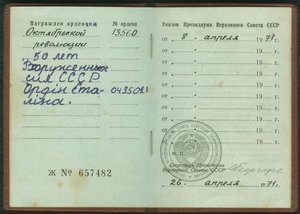 Награжден орденами
№ ордена
Октябрьской
революции
13500
50 лет
Вооруженных
сил СССР
Орден Ста-
лина.
043502
Ж № 657482
Указом Президиума Верховного Совета СССР
от „ 8 „ апреля 1971 г.
от „ „ 19 г.
от „ „ 19 г.
от „ „ 19 г.
от „ „ 19 г.
от „ „ 19 г.
от „ „ 19 г.
от „ „ 19 г.
Секретарь Президиума
Верховного Совета СССР
„26„ апреля 1971 г.